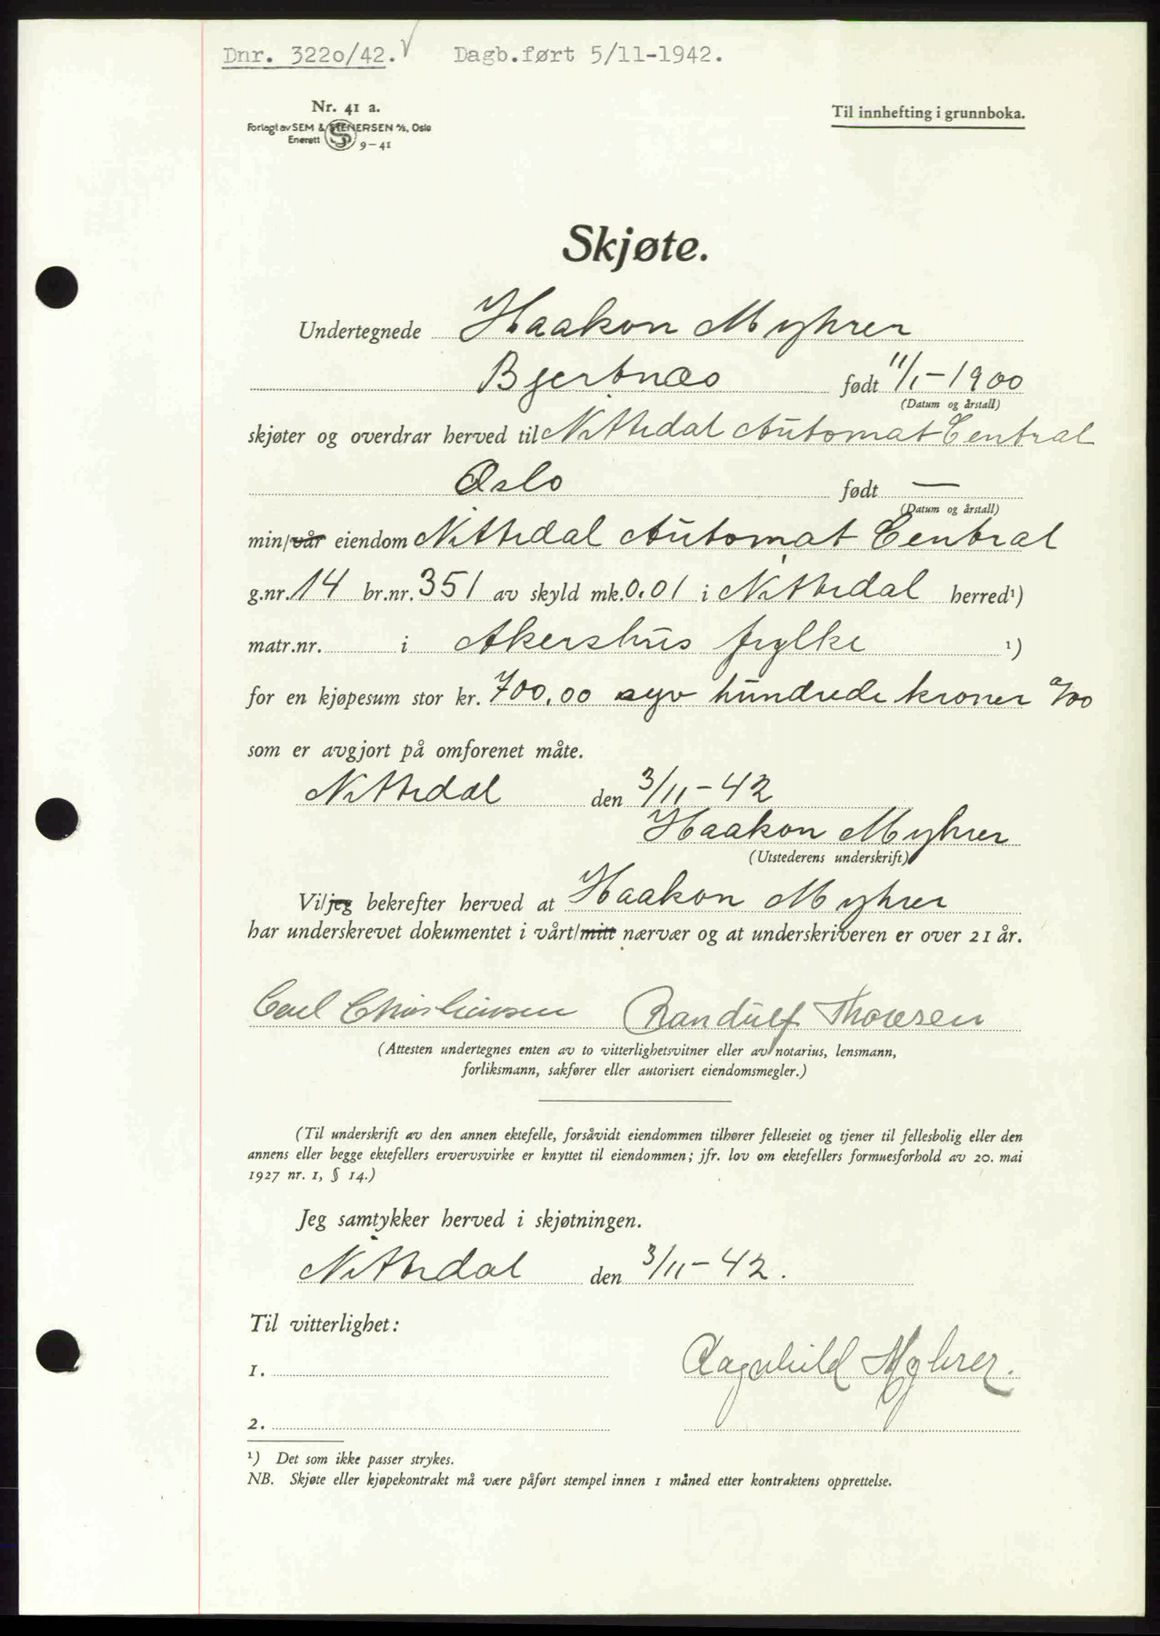 Dnr. 3220/42. √ Dagb.ført 5/11-1942.
Nr. 41 a.
Forlagt av SEM & STENERSEN A/S, Oslo
Enerett 9-41
Til innhefting i grunnboka.
Skjøte.
Undertegnede Haakon Myhrer
Bjertnæs født 11/1-1900
(Datum og årstall)
skjøter og overdrar herved til Nittedal Automat Central
Oslo født —
(Datum og årstall)
min/vår eiendom Nittedal Automat Central
g.nr. 14 br.nr. 351 av skyld mk. 0.01 i Nittedal herred¹)
matr.nr. i Akershus fylke ¹)
for en kjøpesum stor kr. 700,00 syv hundrede kroner 0/00
som er avgjort på omforenet måte.
Nittedal den 3/11-42
Haakon Myhrer
(Utstederens underskrift)
Vi/jeg bekrefter herved at Haakon Myhrer
har underskrevet dokumentet i vårt/mitt nærvær og at underskriveren er over 21 år.
Carl Christiansen Randulf Thoresen
(Attesten undertegnes enten av to vitterlighetsvitner eller av notarius, lensmann,
forliksmann, sakfører eller autorisert eiendomsmegler.)
(Til underskrift av den annen ektefelle, forsåvidt eiendommen tilhører felleseiet og tjener til fellesbolig eller den
annens eller begge ektefellers ervervsvirke er knyttet til eiendommen; jfr. lov om ektefellers formuesforhold av 20. mai
1927 nr. 1, § 14.)
Jeg samtykker herved i skjøtningen.
Nittedal den 3/11-42.
Til vitterlighet:
1. Ragnhild Myhrer.
2.
¹) Det som ikke passer strykes.
NB. Skjøte eller kjøpekontrakt må være påført stempel innen 1 måned etter kontraktens opprettelse.